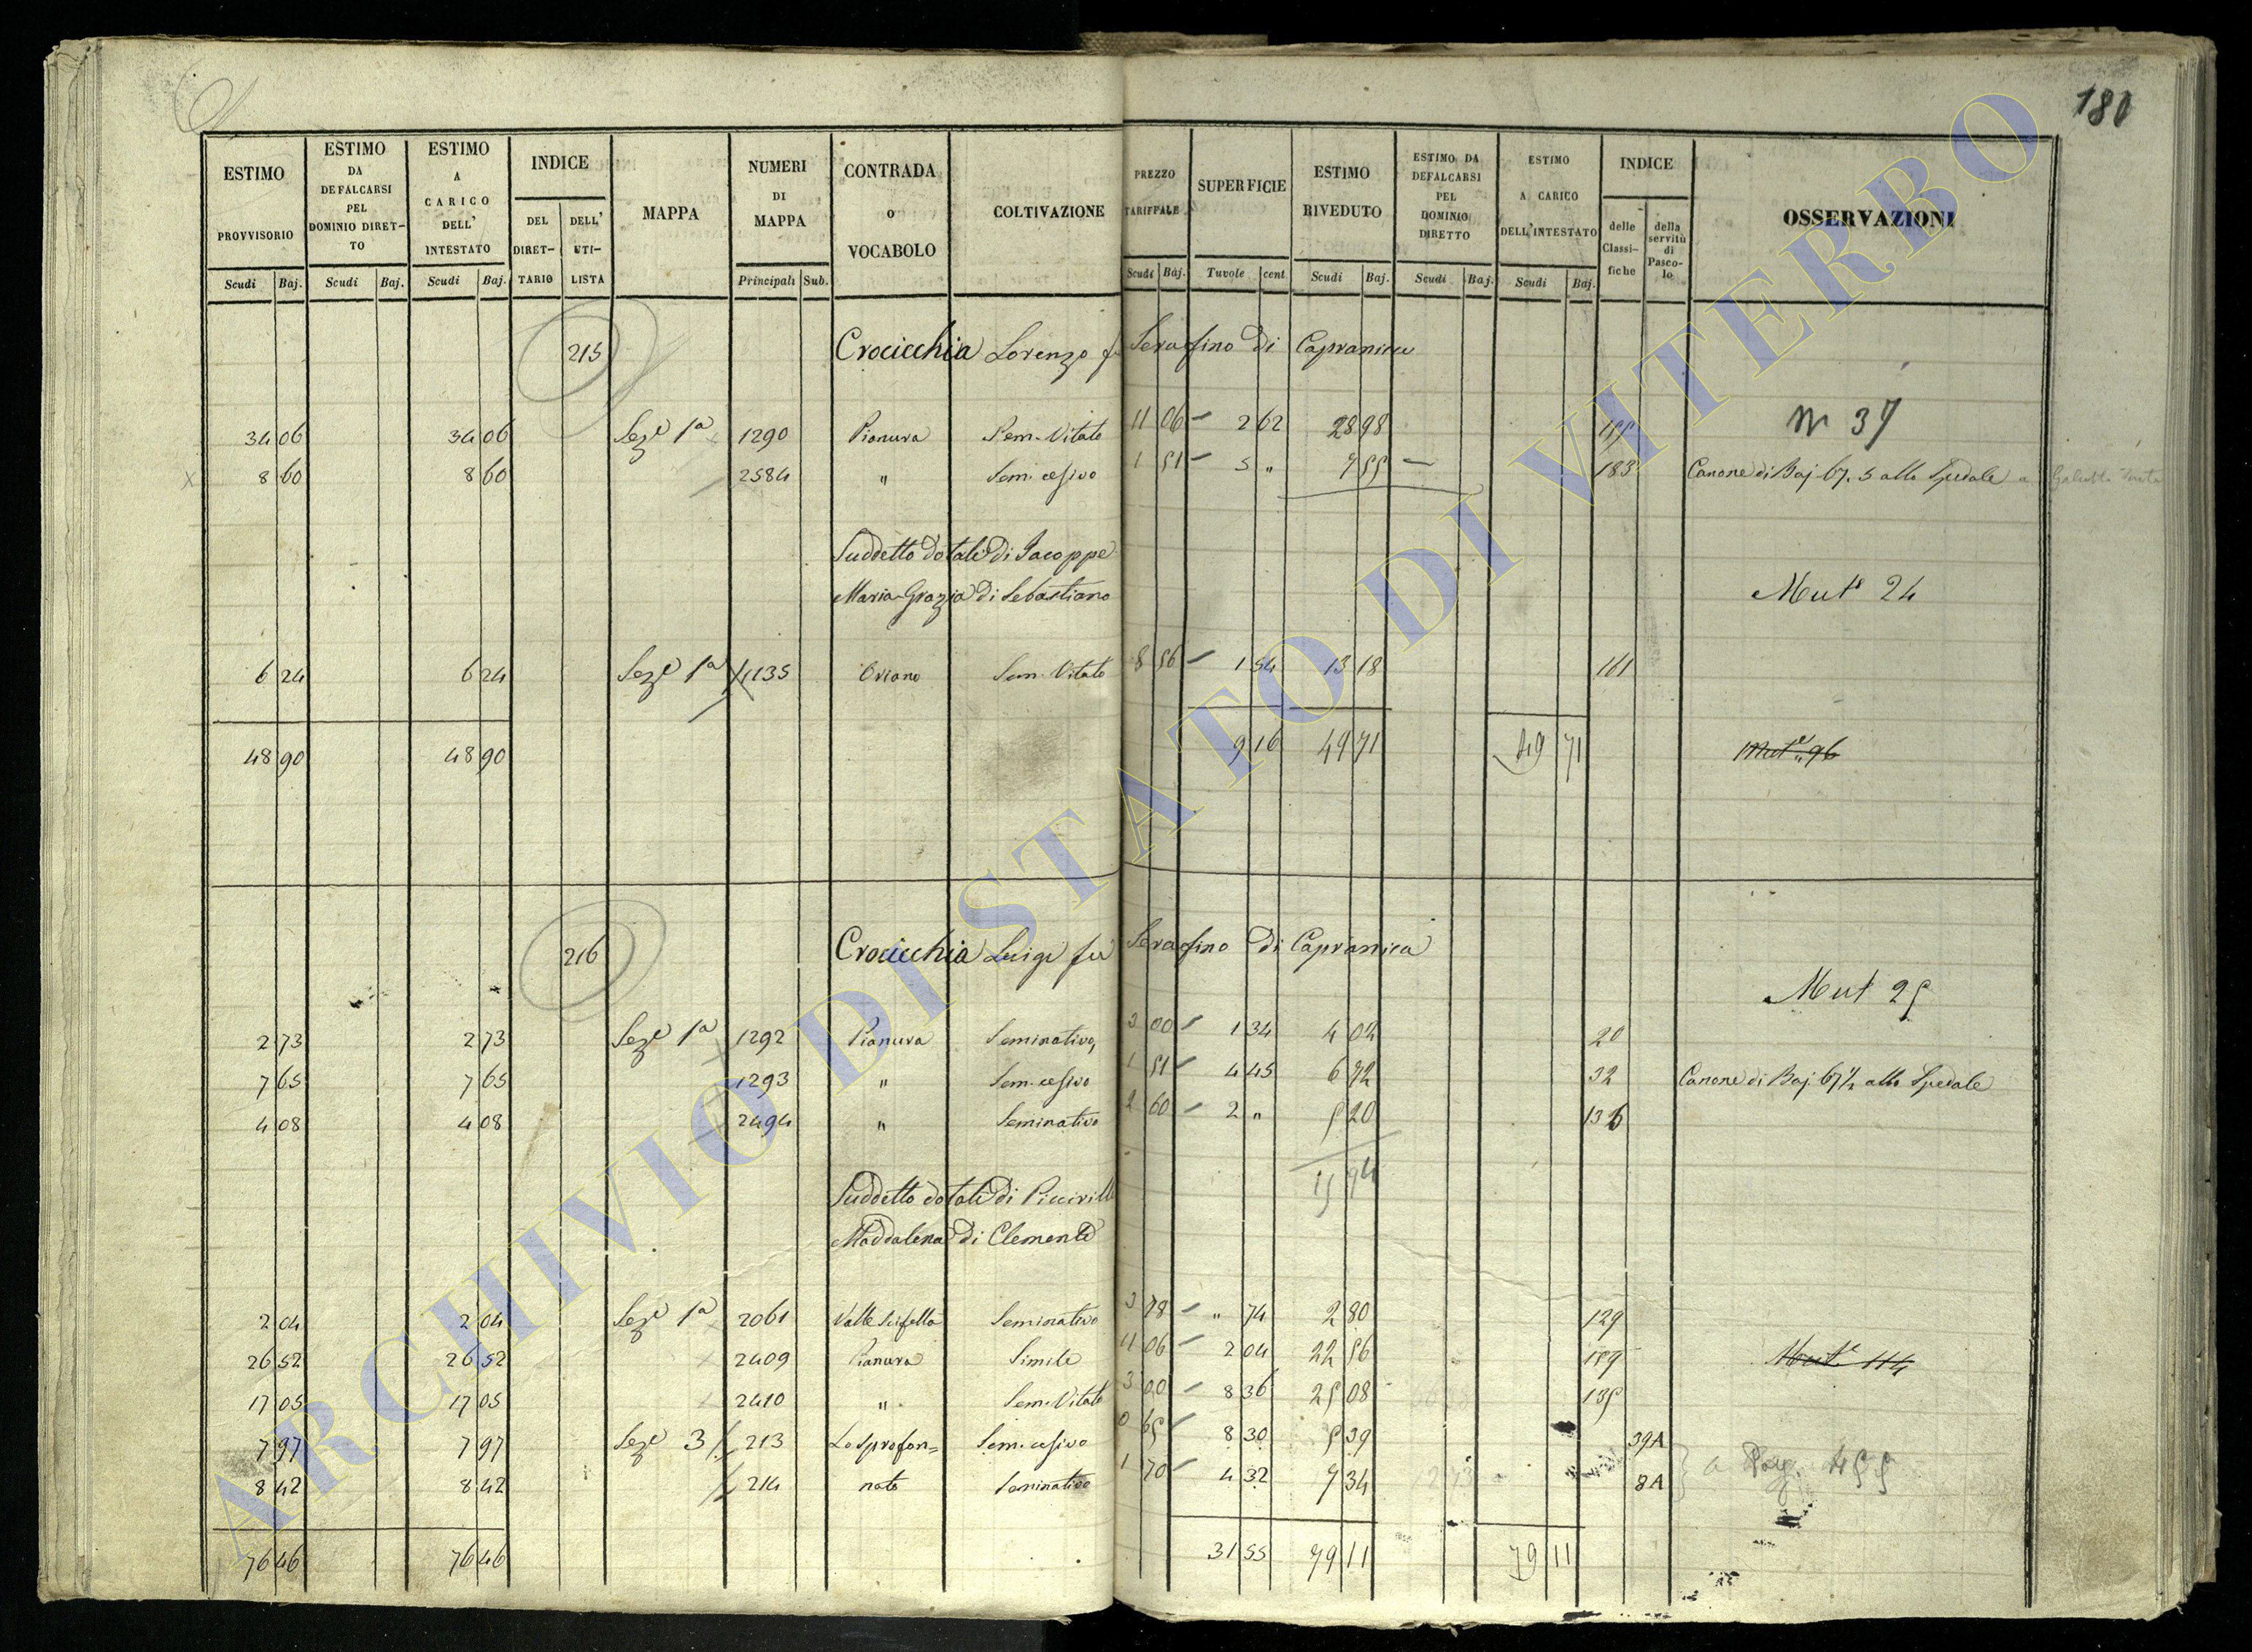 180
ESTIMO PROVVISORIO Scudi Baj.
ESTIMO DA DEFALCARSI PEL DOMINIO DIRETTO Scudi Baj.
ESTIMO A CARICO DELL' INTESTATO Scudi Baj.
INDICE DEL DIRETTARIO DELL' UTILISTA
MAPPA
NUMERI DI MAPPA Principali Sub.
CONTRADA O VOCABOLO
COLTIVAZIONE
PREZZO TARIFFALE Scudi Baj.
SUPERFICIE Tavole cent.
ESTIMO RIVEDUTO Scudi Baj.
ESTIMO DA DEFALCARSI PEL DOMINIO DIRETTO Scudi Baj.
ESTIMO A CARICO DELL'INTESTATO Scudi Baj.
INDICE delle Classifiche della servitù di Pascolo
OSSERVAZIONI
215 Crocicchia Lorenzo fu Serafino di Capranica
34 06 34 06 Seze 1a 1290 Pianura Sem. Vitato 11 06 2 62 28 98 155 N 37
8 60 8 60 2584 " Sem. cesivo 1 51 5 " 7 55 183 Canone di Baj 67.5 allo Spedale
Suddetto dotale di Jacoppe
Maria-Grazia di Sebastiano Mute 24
6 24 6 24 Seze 1a 1135 Oriano Sem. Vitato 8 56 1 54 13 18 161
48 90 48 90 9 16 49 71 49 71 Mute 96
216 Crocicchia Luigi fu Serafino di Capranica
Mut 25
2 73 2 73 Seze 1a 1292 Pianura Seminativo 3 00 1 34 4 04 20
7 65 7 65 1293 " Sem. cesivo 1 51 4 45 6 72 32 Canone di Baj 67½ allo Spedale
4 08 4 08 2494 " Seminativo 2 60 2 " 5 20 136
15 94
Suddetto dotale di Piccirilli
Maddalena di Clemente
2 04 2 04 Seze 1a 2061 Valle Seminativo 3 78 " 74 2 80 129
26 52 26 52 2409 Pianura Simile 11 06 2 04 22 56 189 Mute 114
17 05 17 05 2410 " Sem. Vitato 3 00 8 36 25 08 135
7 97 7 97 Seze 3 213 Losprofon= Sem. cesivo 0 65 8 30 5 39 39A
8 42 8 42 214 nato Seminativo 1 70 4 32 7 34 8A a Pag. 455
76 46 76 46 31 55 79 11 79 11
ARCHIVIO DI STATO DI VITERBO